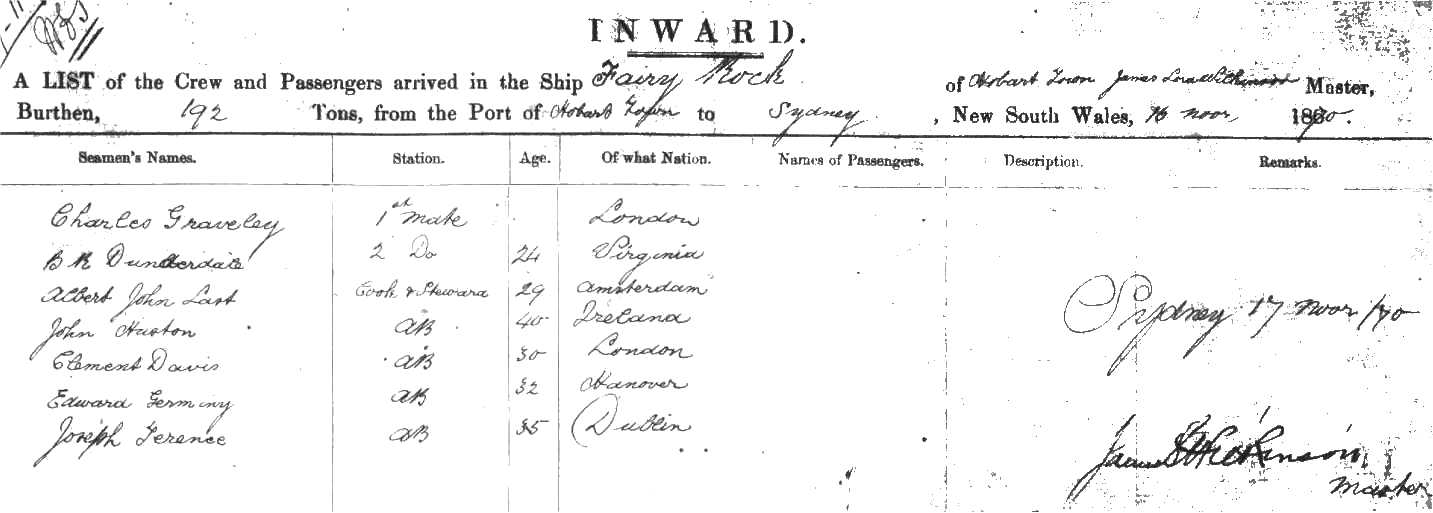 INWARD.
A LIST of the Crew and Passengers arrived in the Ship Fairy Rock of Hobart Town James Master,
Burthen, 192 Tons, from the Port of Hobart Town to Sydney, New South Wales, 16 Novr, 1870.
Seamen's Names. Station. Age. Of what Nation. Names of Passengers. Description. Remarks.
Charles Graveley 1st mate London
B R Dunderdale 2 Do 24 Virginia
Albert John Last Cook & Steward 29 Amsterdam
John Huston AB 40 Ireland
Clement Davis AB 30 London
Edward Germiny AB 32 Hanover
Joseph Terence AB 35 Dublin
Sydney 17 Novr /70
James Wilkinson,
Master